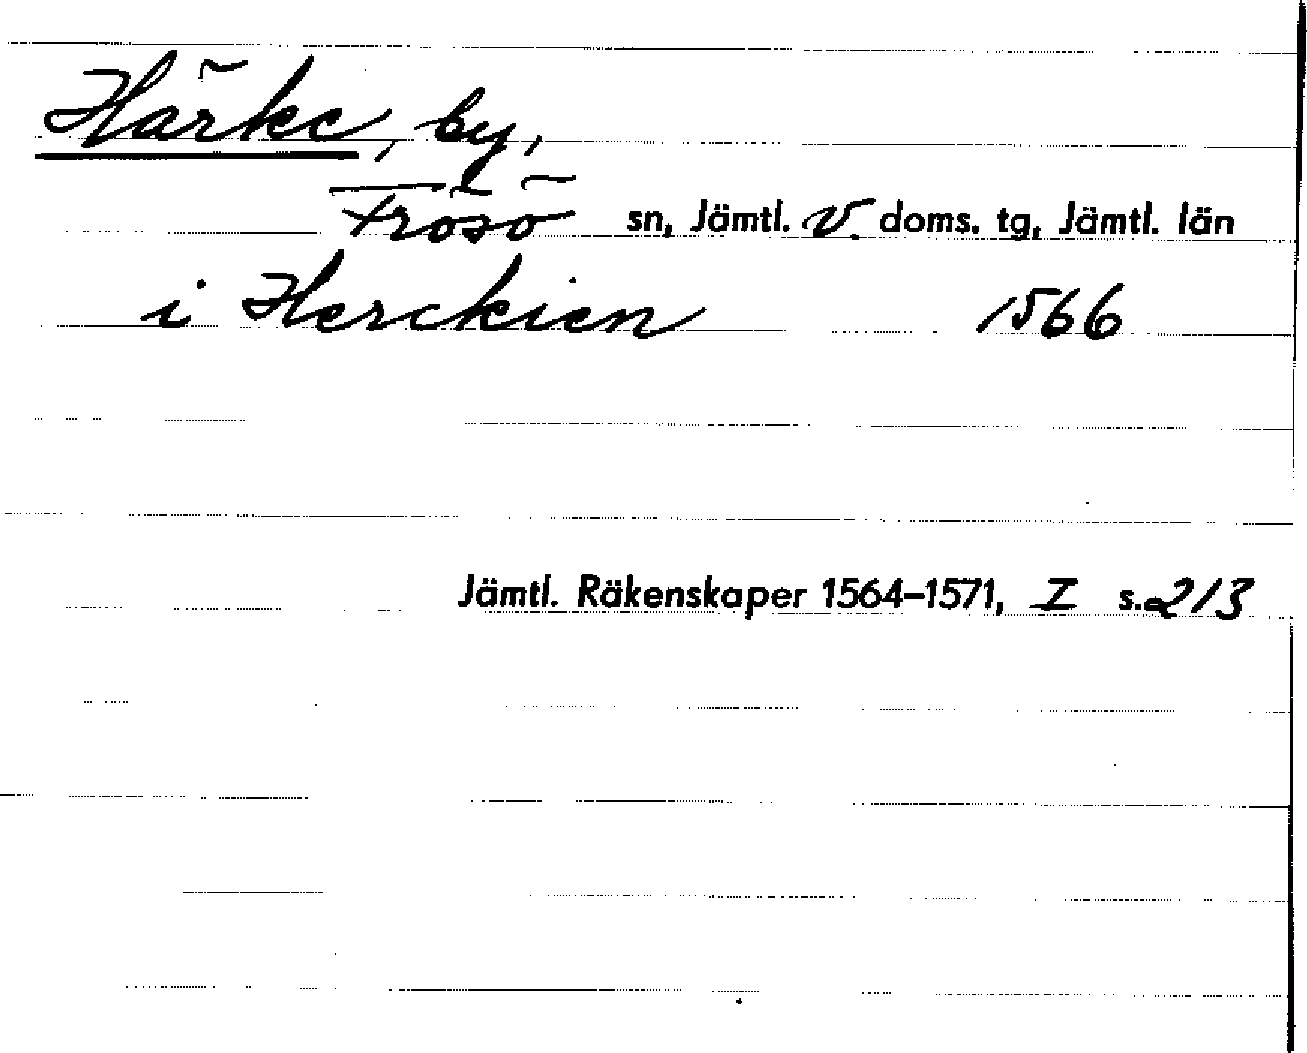 Härke, by,
Frösö sn, Jämtl. V. doms. tg, Jämtl. län
i Herckien 1566
Jämtl. Räkenskaper 1564–1571, I s. 213